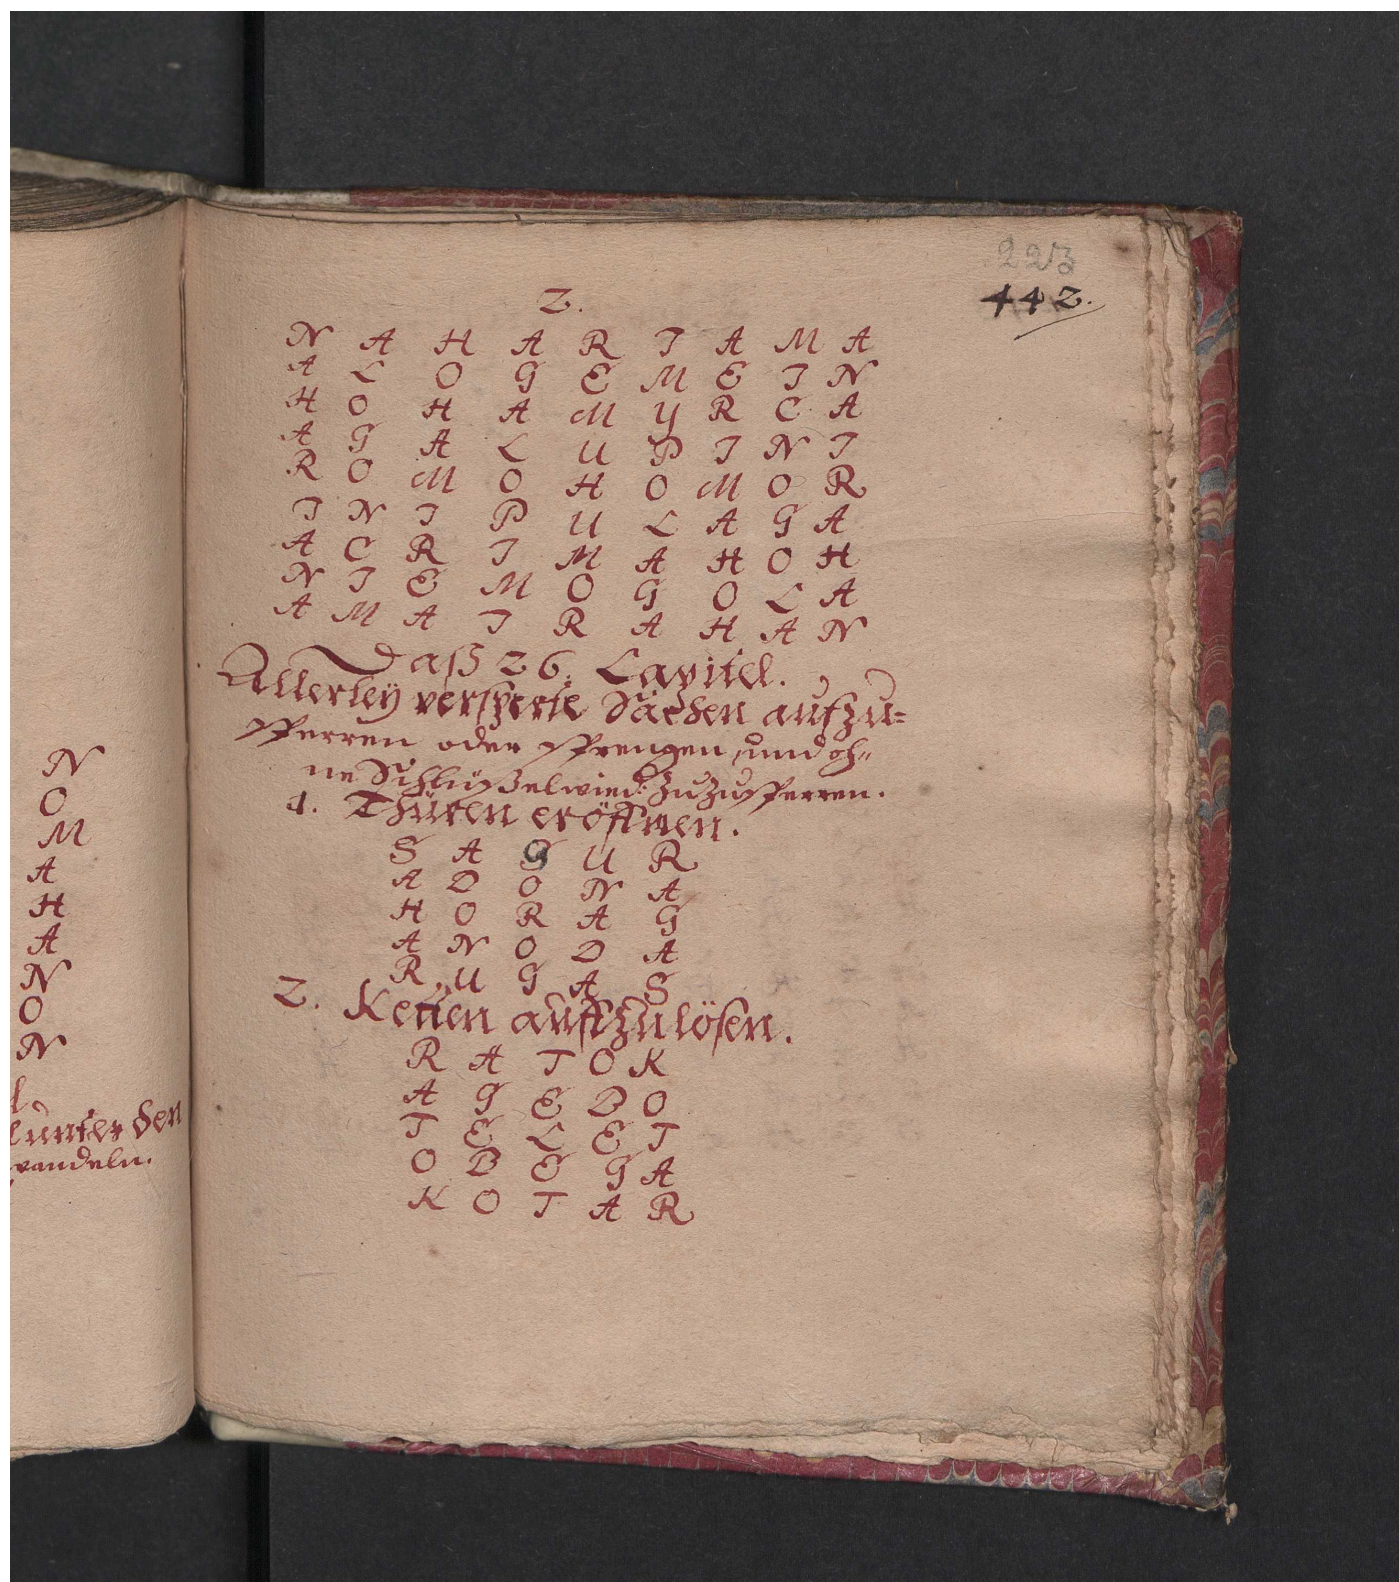 N
O
M
A
H
A
N
O
N
unter den
wandeln.
223
442.
2.
N A H A R I A M A
A L O G E M E I N
H O H A M Y R C A
A G A L U P I N I
R O M O H O M O R
I N I P U L A G A
A C R I M A H O H
N I E M O G O L A
A M A I R A H A N
Daß 26. Capitel.
Allerleÿ versperte Sachen aufzu=
sperren oder sprengen, und oh=
ne Schlüßel wied: zuzusperren.
1. Thüren eröffnen.
S A G U R
A D O N A
H O R A G
A N O D A
R U G A S
2. Ketten auffzulösen.
R A T O K
A G E B O
T E L E T
O B E G A
K O T A R